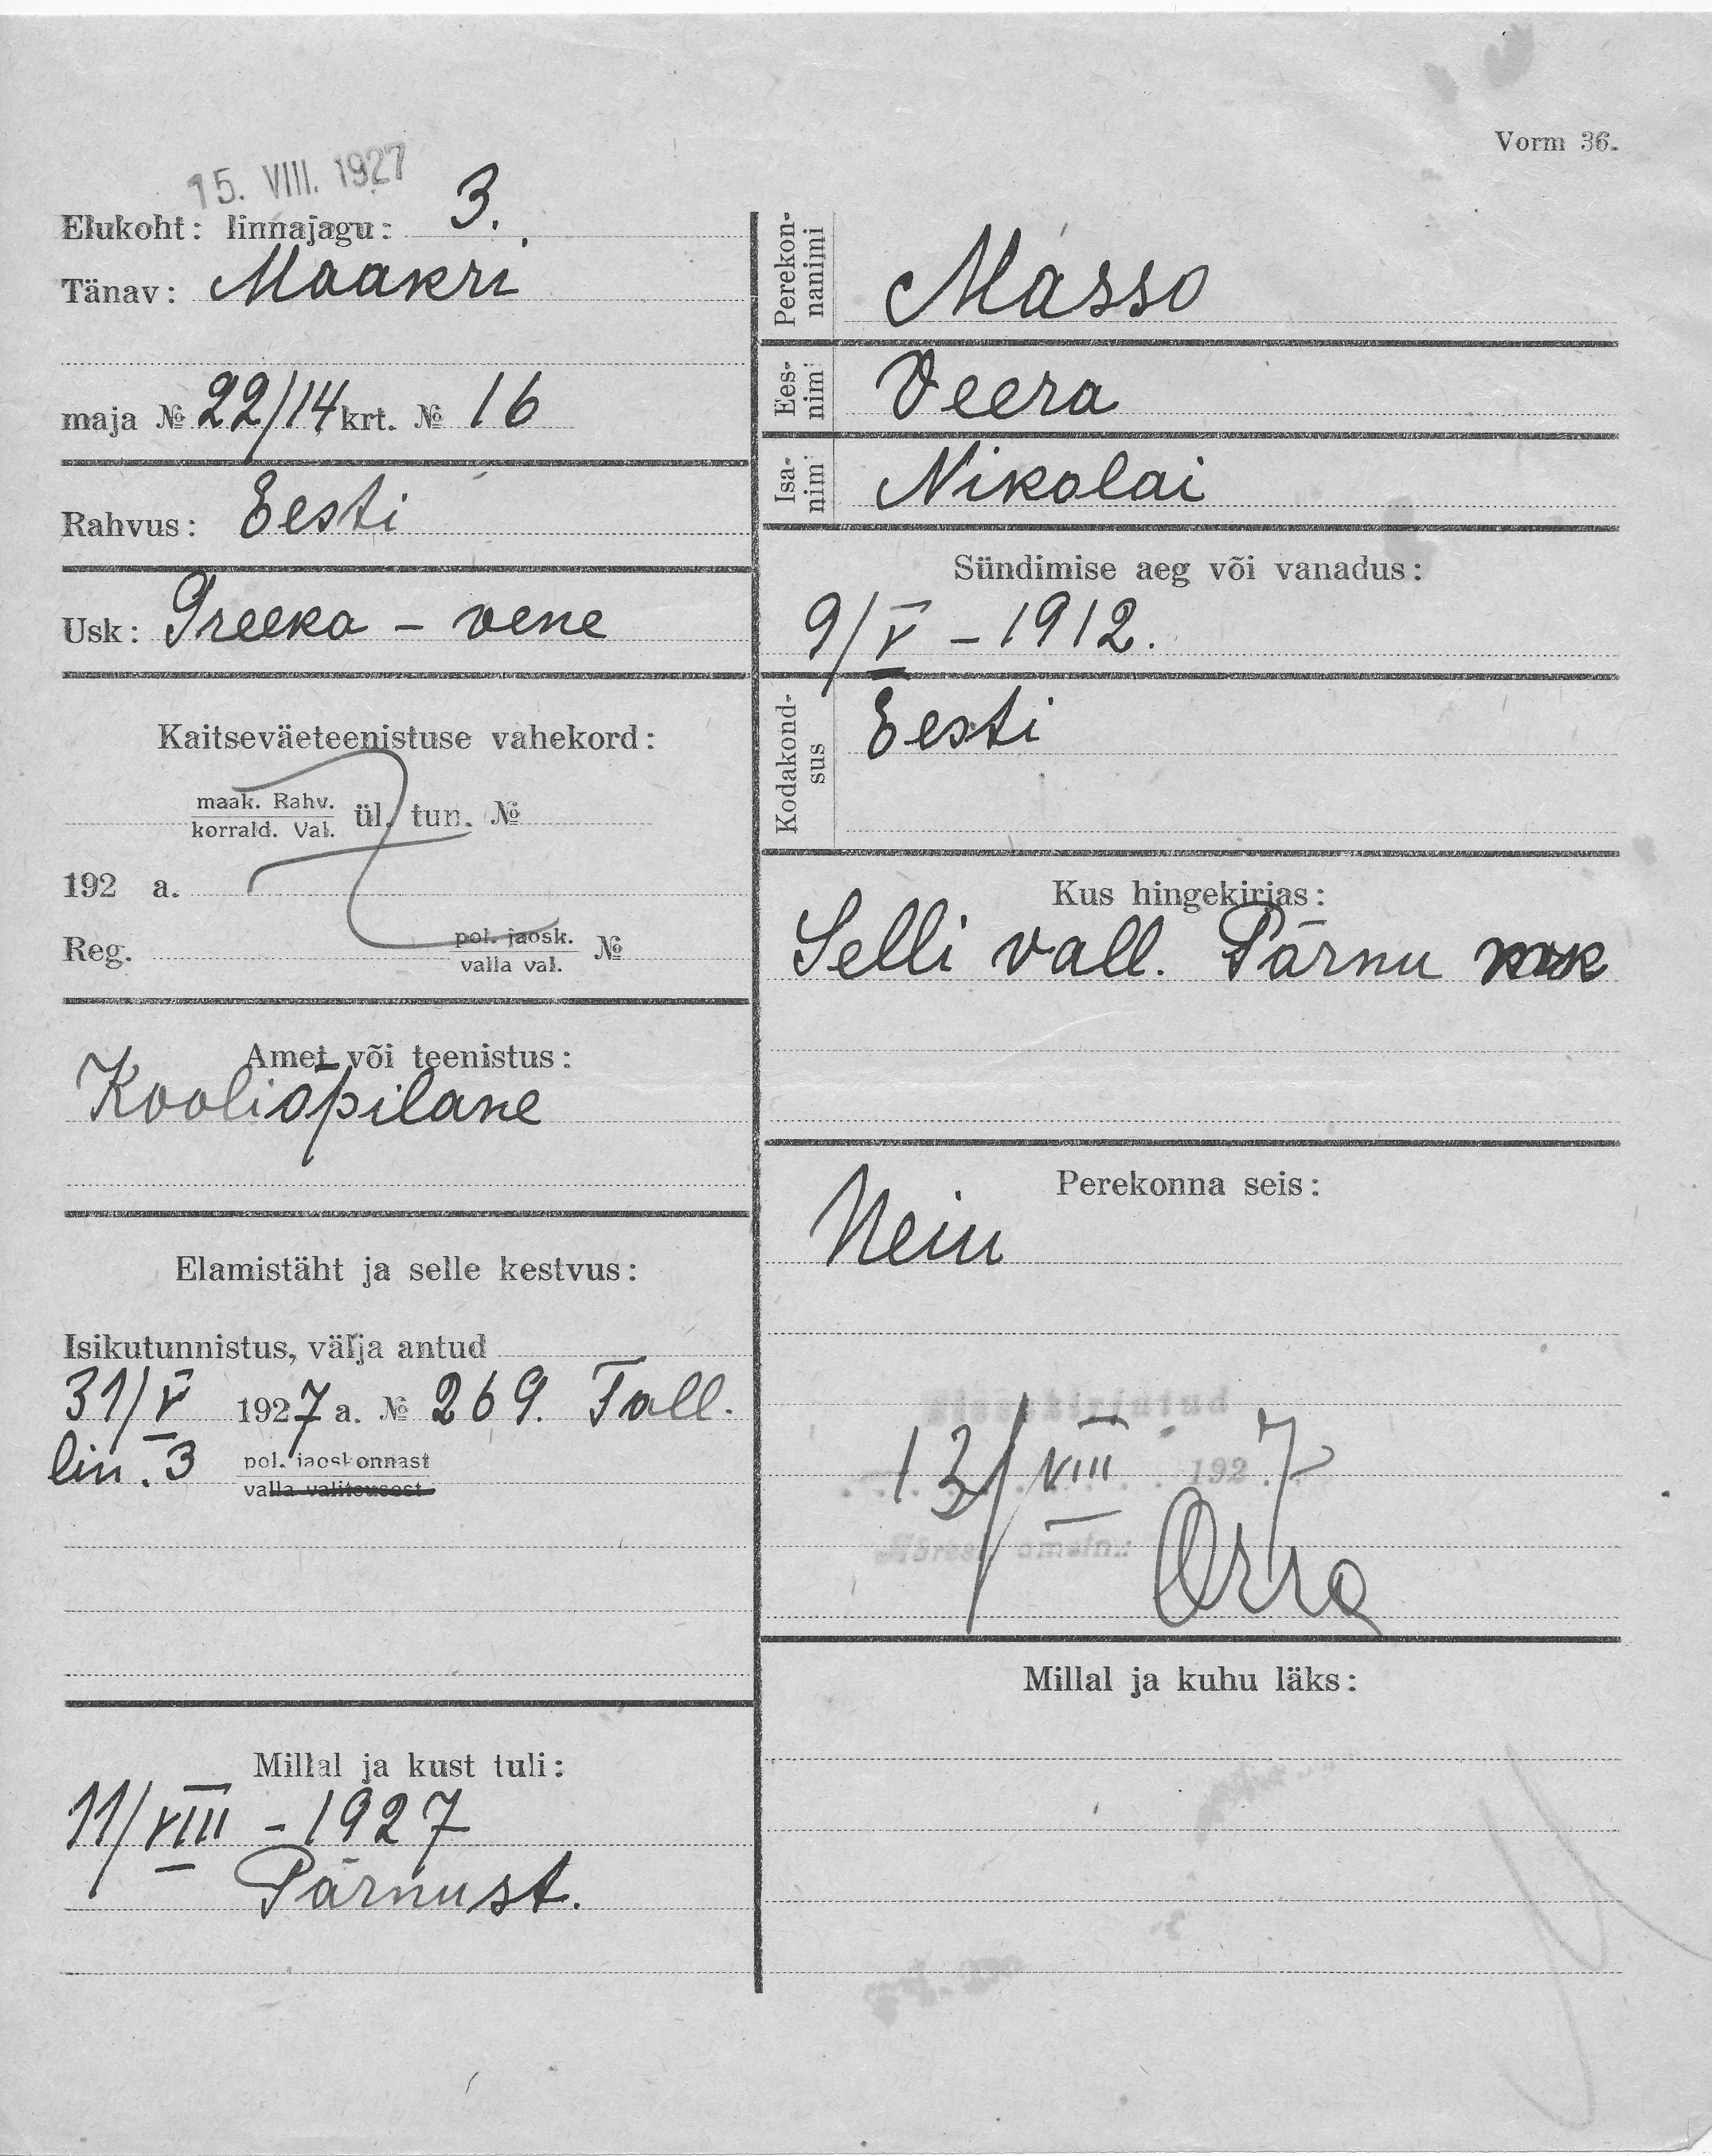 Vorm 36.
15. VIII. 1927
Elukoht: linnajagu: 3.
Tänav: Maakri
maja № 22/14 krt. № 16
Rahvus: Eesti
Usk: Greeka - vene
Kaitseväeteenistuse vahekord:
maak. Rahv.
korrald. Val. ül. tun. №
192 a.
Reg. pol. jaosk.
valla val. №
Amet või teenistus:
Kooliõpilane
Elamistäht ja selle kestvus:
Isikutunnistus, välja antud
31/V 1927 a. № 269. Tall.
lin. 3 pol. jaoskonnast
valla valitsusest
Millal ja kust tuli:
11/VIII - 1927
Pärnust.
Perekon-
nanimi Masso
Ees-
nimi Veera
Isa-
nimi Nikolai
Sündimise aeg või vanadus:
9/V - 1912.
Kodakond-
sus Eesti
Kus hingekirjas:
Selli vall. Pärnu
Perekonna seis:
Neiu
Sissekirjutud
13/VIII 1927
Orro
Millal ja kuhu läks: